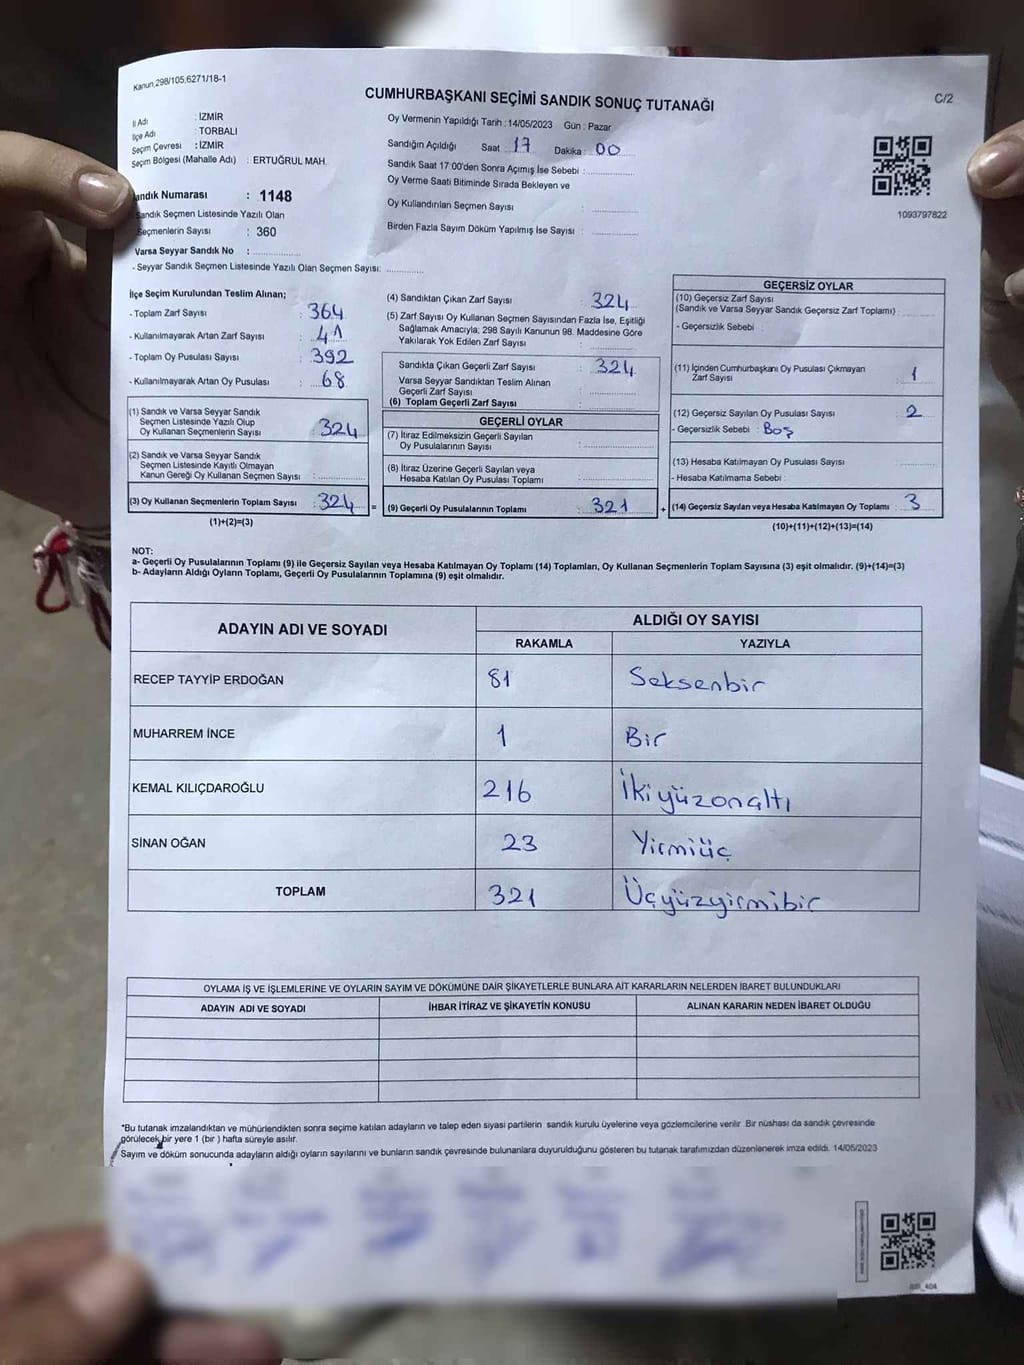 Kanun 298/105,6271/18-1
C/2
CUMHURBAŞKANI SEÇİMİ SANDIK SONUÇ TUTANAĞI
İl Adı : İZMİR
İlçe Adı : TORBALI
Seçim Çevresi : İZMİR
Seçim Bölgesi (Mahalle Adı) : ERTUĞRUL MAH.
Oy Vermenin Yapıldığı Tarih : 14/05/2023 Gün : Pazar
Sandığın Açıldığı Saat 17 Dakika : 00
Sandık Saat 17:00'den Sonra Açımış İse Sebebi :
Oy Verme Saati Bitiminde Sırada Bekleyen ve
Oy Kullandırılan Seçmen Sayısı :
Birden Fazla Sayım Döküm Yapılmış İse Sayısı :
1093797822
andık Numarası : 1148
Sandık Seçmen Listesinde Yazılı Olan
Seçmenlerin Sayısı : 360
Varsa Seyyar Sandık No :
- Seyyar Sandık Seçmen Listesinde Yazılı Olan Seçmen Sayısı:
İlçe Seçim Kurulundan Teslim Alınan;
- Toplam Zarf Sayısı : 364
- Kullanılmayarak Artan Zarf Sayısı : 41
- Toplam Oy Pusulası Sayısı : 392
- Kullanılmayarak Artan Oy Pusulası : 68
(1) Sandık ve Varsa Seyyar Sandık
Seçmen Listesinde Yazılı Olup
Oy Kullanan Seçmenlerin Sayısı : 324
(2) Sandık ve Varsa Seyyar Sandık
Seçmen Listesinde Kayıtlı Olmayan
Kanun Gereği Oy Kullanan Seçmen Sayısı :
(3) Oy Kullanan Seçmenlerin Toplam Sayısı : 324 =
(1)+(2)=(3)
(4) Sandıktan Çıkan Zarf Sayısı : 324
(5) Zarf Sayısı Oy Kullanan Seçmen Sayısından Fazla İse, Eşitliği
Sağlamak Amacıyla; 298 Sayılı Kanunun 98. Maddesine Göre
Yakılarak Yok Edilen Zarf Sayısı :
Sandıkta Çıkan Geçerli Zarf Sayısı : 324
Varsa Seyyar Sandıktan Teslim Alınan
Geçerli Zarf Sayısı :
(6) Toplam Geçerli Zarf Sayısı :
GEÇERLİ OYLAR
(7) İtiraz Edilmeksizin Geçerli Sayılan
Oy Pusulalarının Sayısı :
(8) İtiraz Üzerine Geçerli Sayılan veya
Hesaba Katılan Oy Pusulası Toplamı :
(9) Geçerli Oy Pusulalarının Toplamı : 321 +
GEÇERSİZ OYLAR
(10) Geçersiz Zarf Sayısı
(Sandık ve Varsa Seyyar Sandık Geçersiz Zarf Toplamı) :
- Geçersizlik Sebebi :
(11) İçinden Cumhurbaşkanı Oy Pusulası Çıkmayan
Zarf Sayısı : 1
(12) Geçersiz Sayılan Oy Pusulası Sayısı : 2
- Geçersizlik Sebebi : Boş
(13) Hesaba Katılmayan Oy Pusulası Sayısı :
- Hesaba Katılmama Sebebi :
(14) Geçersiz Sayılan veya Hesaba Katılmayan Oy Toplamı : 3
(10)+(11)+(12)+(13)=(14)
NOT:
a- Geçerli Oy Pusulalarının Toplamı (9) ile Geçersiz Sayılan veya Hesaba Katılmayan Oy Toplamı (14) Toplamları, Oy Kullanan Seçmenlerin Toplam Sayısına (3) eşit olmalıdır. (9)+(14)=(3)
b- Adayların Aldığı Oyların Toplamı, Geçerli Oy Pusulalarının Toplamına (9) eşit olmalıdır.
ADAYIN ADI VE SOYADI
ALDIĞI OY SAYISI
RAKAMLA YAZIYLA
RECEP TAYYİP ERDOĞAN 81 Seksenbir
MUHARREM İNCE 1 Bir
KEMAL KILIÇDAROĞLU 216 İkiyüzonaltı
SİNAN OĞAN 23 Yirmiüç
TOPLAM 321 Üçyüzyirmibir
OYLAMA İŞ VE İŞLEMLERİNE VE OYLARIN SAYIM VE DÖKÜMÜNE DAİR ŞİKAYETLERLE BUNLARA AİT KARARLARIN NELERDEN İBARET BULUNDUKLARI
ADAYIN ADI VE SOYADI İHBAR İTİRAZ VE ŞİKAYETİN KONUSU ALINAN KARARIN NEDEN İBARET OLDUĞU
*Bu tutanak imzalandıktan ve mühürlendikten sonra seçime katılan adayların ve talep eden siyasi partilerin sandık kurulu üyelerine veya gözlemcilerine verilir. Bir nüshası da sandık çevresinde
görülecek bir yere 1 (bir ) hafta süreyle asılır.
Sayım ve döküm sonucunda adayların aldığı oyların sayılarını ve bunların sandık çevresinde bulunanlara duyurulduğunu gösteren bu tutanak tarafımızdan düzenlenerek imza edildi. 14/05/2023